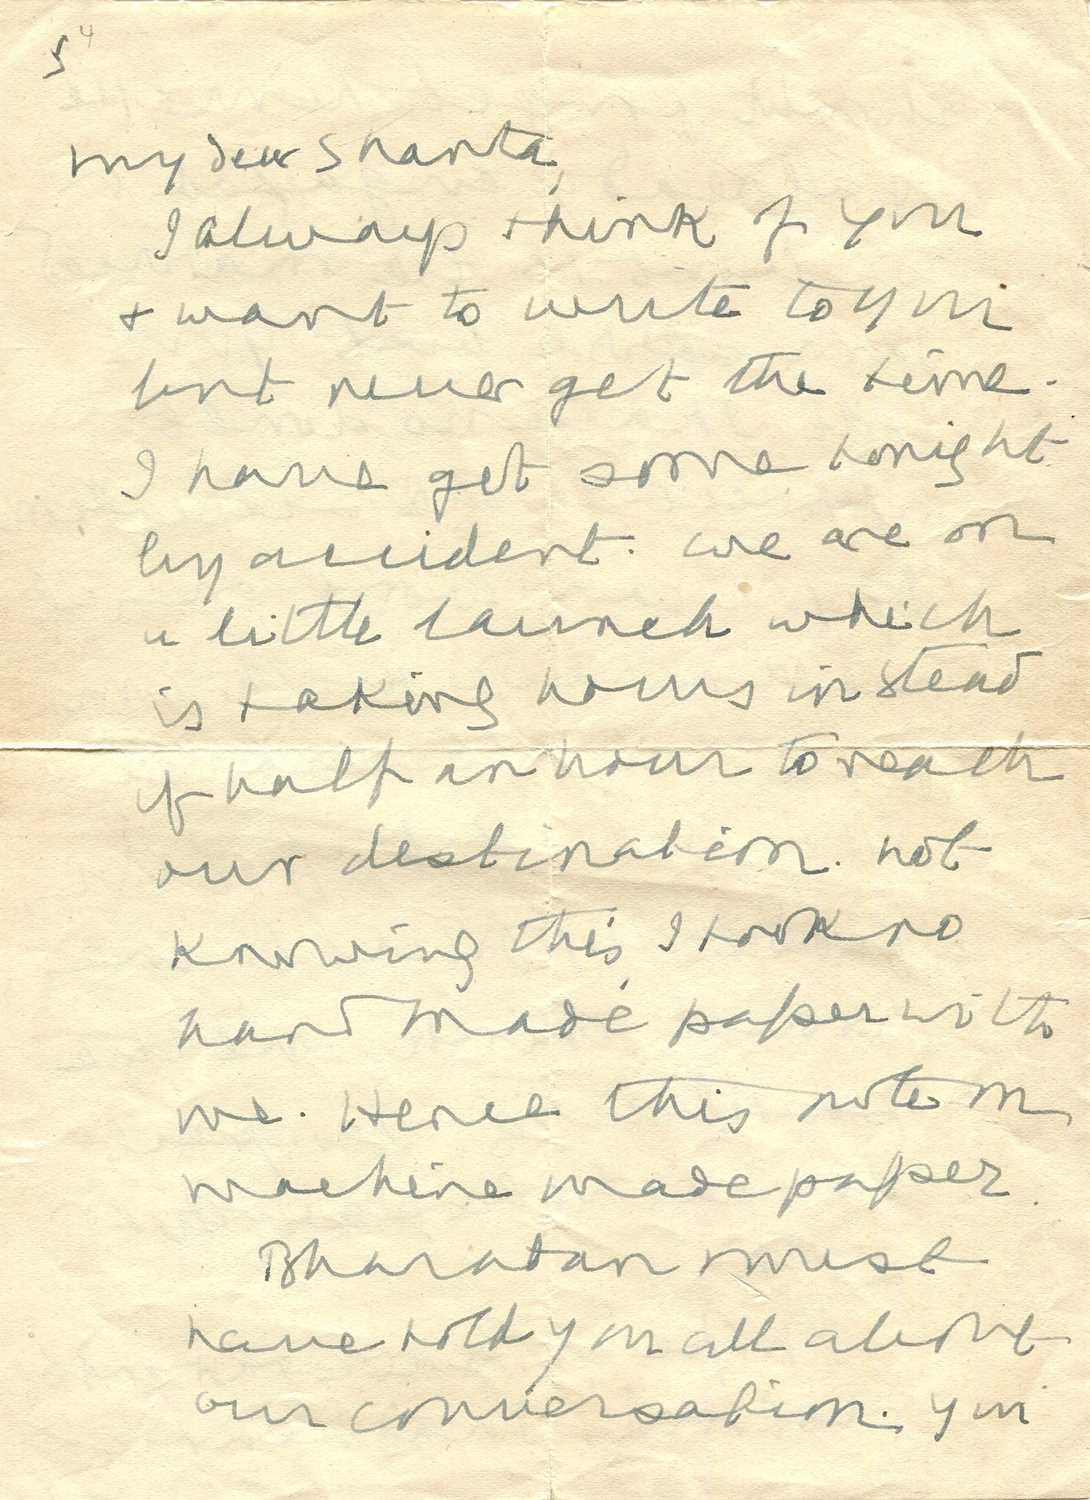 My dear Shanta,
I always think of you
+ want to write to you
but never get the time.
I have get some tonight
by accident. We are on
a little launch which
is taking hours instead
of half an hour to reach
our destination. Not
knowing this, I took no
hand made paper with
me. Hence this note on
machine made paper.
Bharatan must
have told you all about
our conversation. You